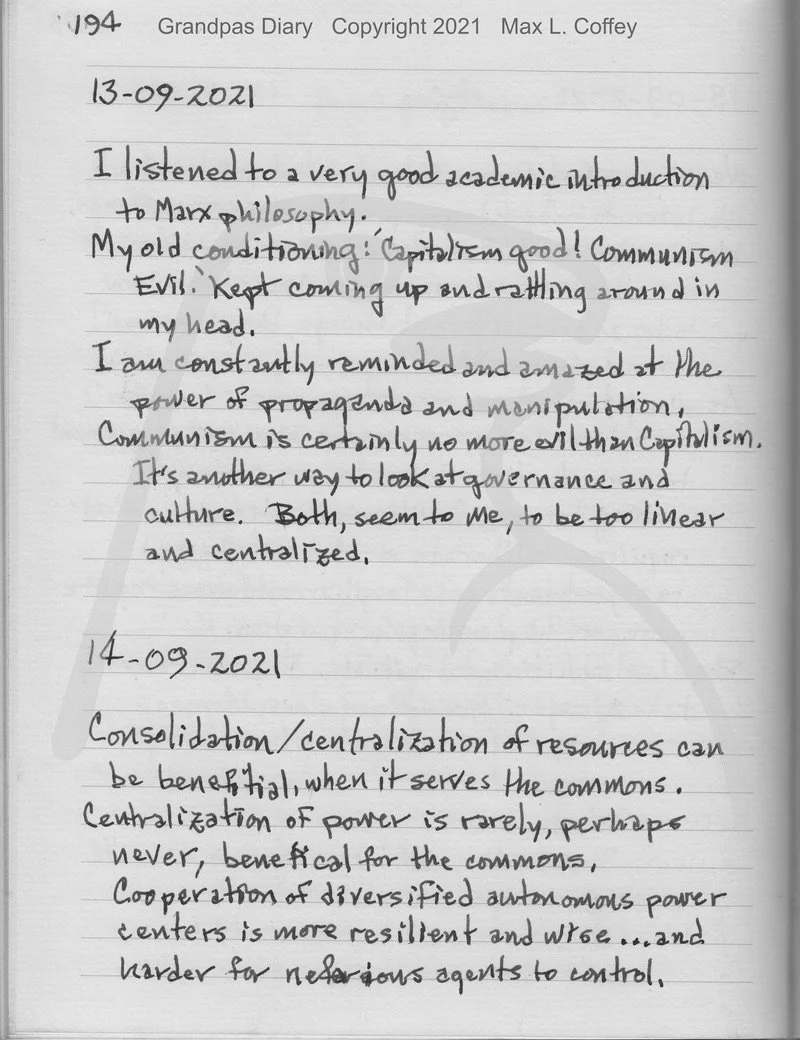 194 Grandpas Diary Copyright 2021 Max L. Coffey
13-09-2021
I listened to a very good academic introduction
to Marx philosophy.
My old conditioning: 'Capitalism good! Communism
Evil.' Kept coming up and rattling around in
my head.
I am constantly reminded and amazed at the
power of propaganda and manipulation.
Communism is certainly no more evil than Capitalism.
It's another way to look at governance and
culture. Both, seem to me, to be too linear
and centralized.
14-09-2021
Consolidation/centralization of resources can
be benefitial, when it serves the commons.
Centralization of power is rarely, perhaps
never, benefical for the commons.
Cooperation of diversified autonomous power
centers is more resilient and wise...and
harder for nefarious agents to control.